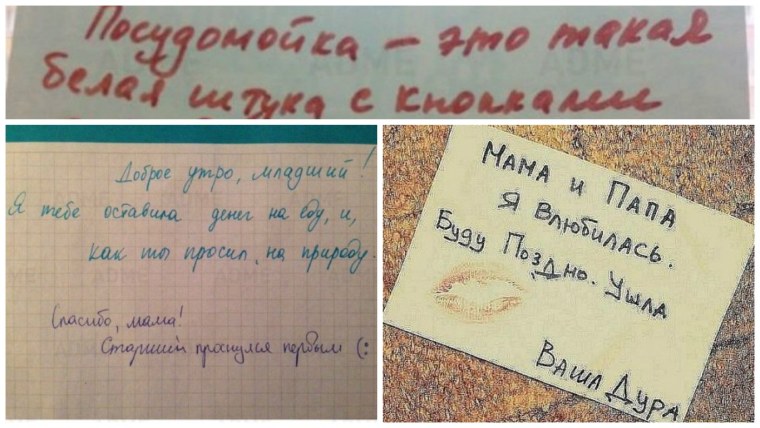 Посудомойка — это такая
белая штука с кнопками
Доброе утро, младший!
Я тебе оставила денег на еду, и,
как ты просил, на природу.
Спасибо, мама!
Старший проснулся первым (:
Мама и Папа
Я Влюбилась.
Буду Поздно. Ушла
Ваша Дура